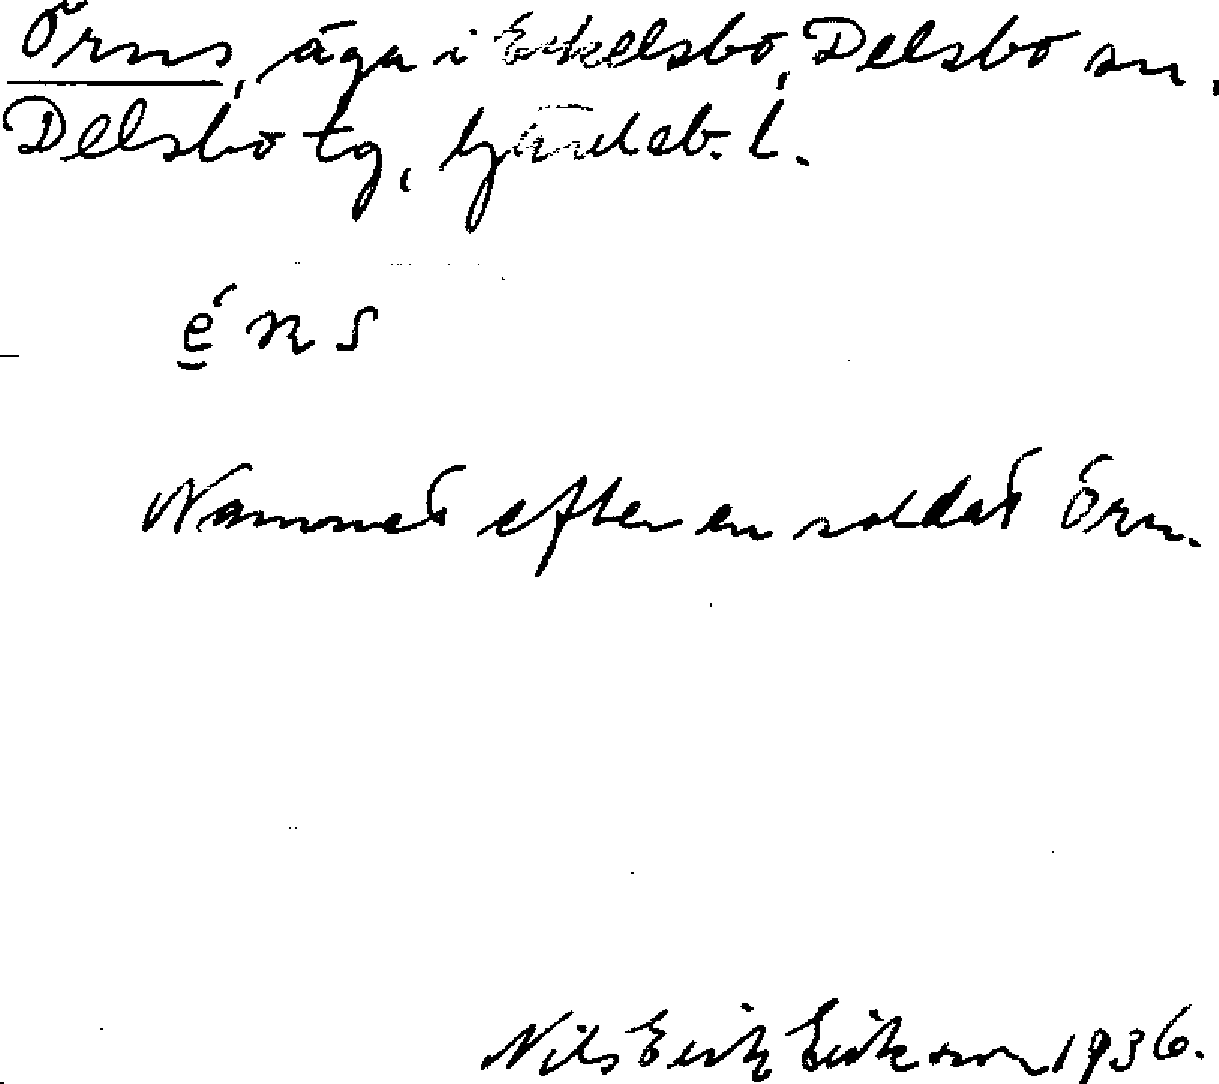 Örns, äga i Eskelsbo, Delsbo sn,
Delsbo tg, Gävleb. l.
é n s
Namnet efter en soldat Örn.
Nils Erik Eriksson 1936.